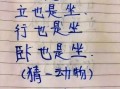 立也是坐
行也是坐
卧也是坐.
(猜一动物)